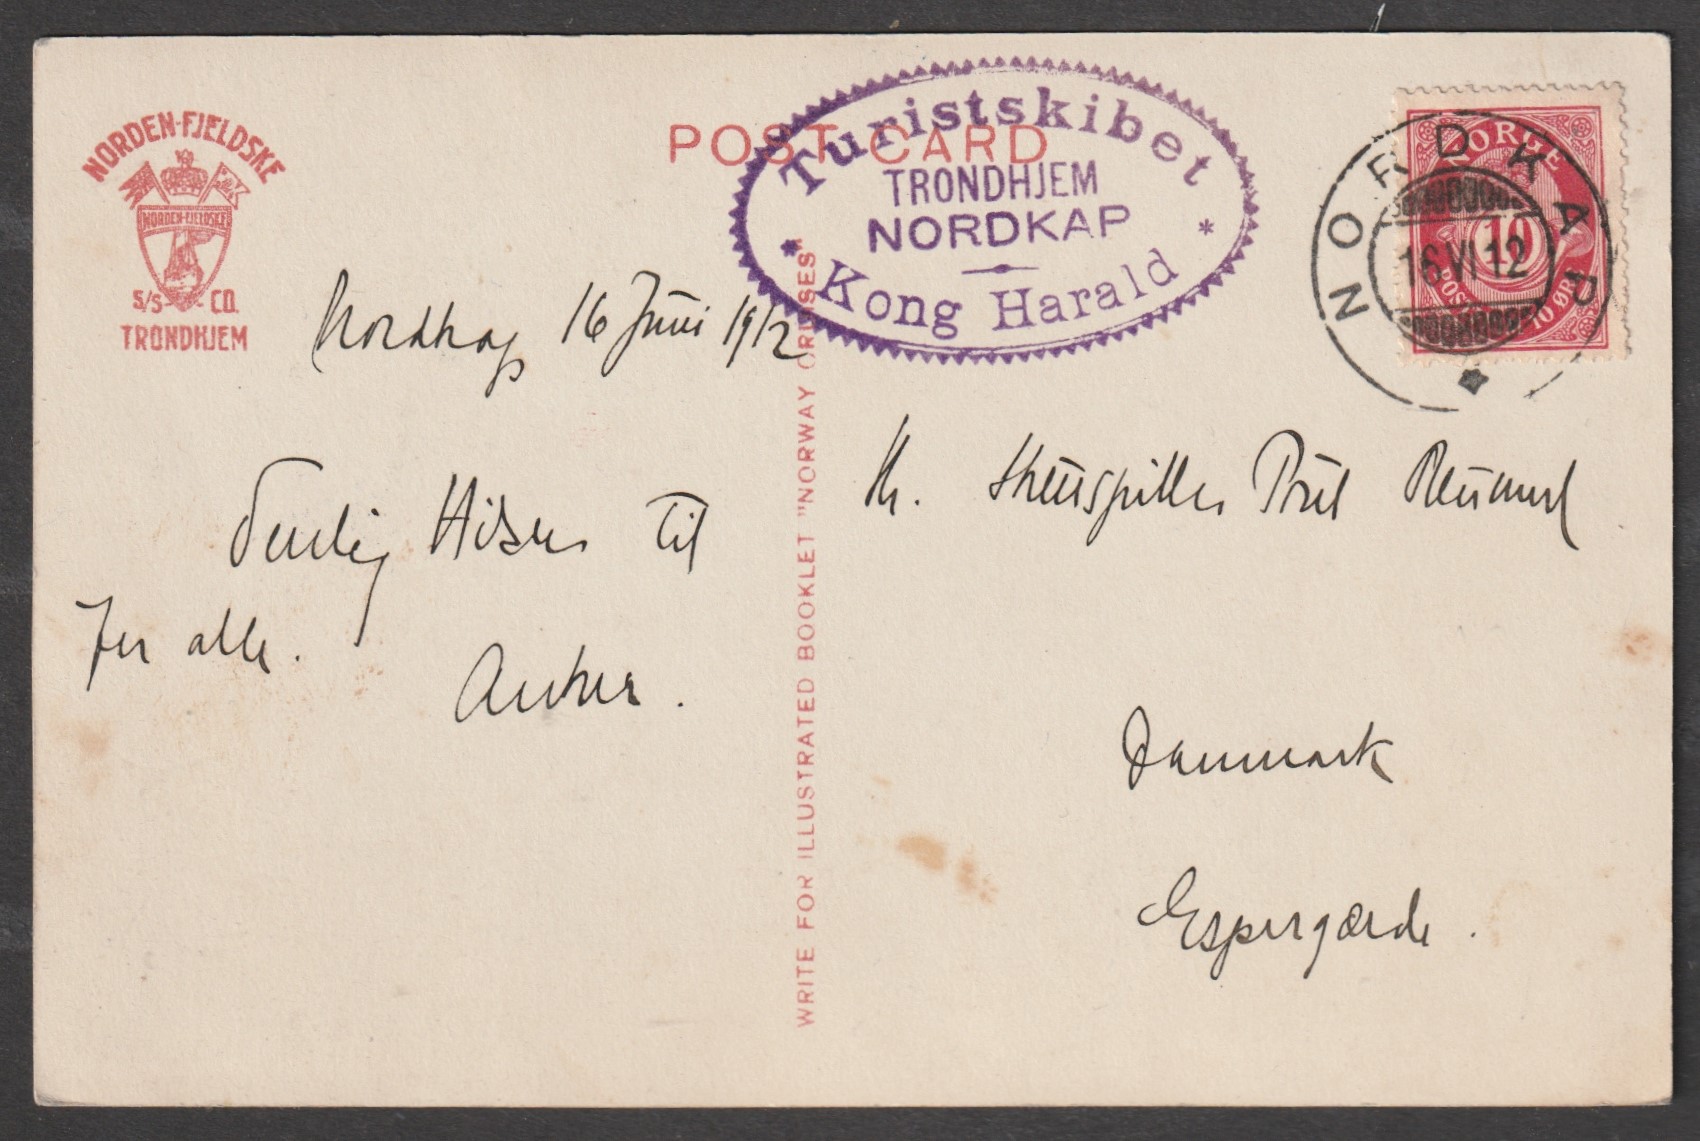 NORDEN-FJELDSKE
NORDEN-FJELDSKE
S/S CO.
TRONDHJEM
POST CARD
Turistskibet
TRONDHJEM
NORDKAP
* Kong Harald *
NORGE
10
POST 10 ØRE
NORDKAP
16 VI 12
WRITE FOR ILLUSTRATED BOOKLET "NORWAY CRUISES"
Nordkap 16 Juni 1912
Venlig Hilsen til
Jer alle.
Anker.
Hr. Skuespiller Poul Reumert
Danmark
Espergærde.